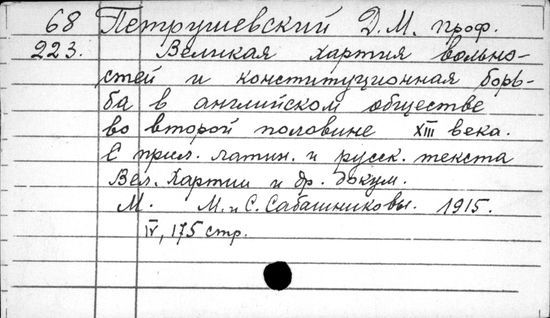 68 Петрушевский Д.М. проф.
223. Великая хартия вольно-
стей и конституционная борь-
ба в английском обществе
во второй половине XIII века.
С прил. латин. и русск. текста
Вел. Хартии и др. докум.
М. М. и С. Сабашниковы. 1915.
IV, 175 стр.